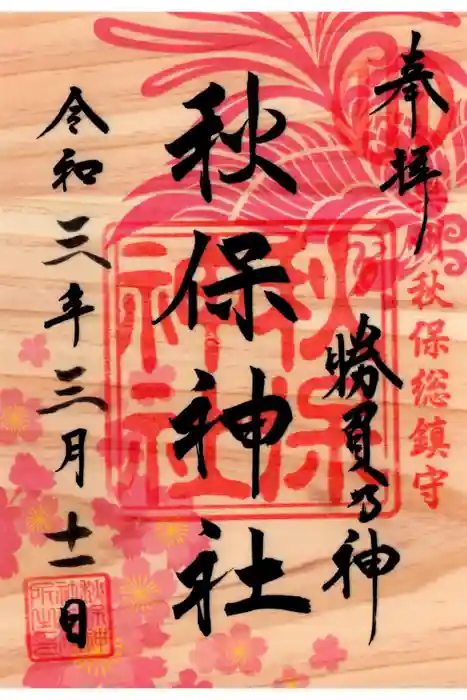 奉拝
秋保総鎮守
勝負の神
秋保神社
秋保神社
令和三年三月十一日